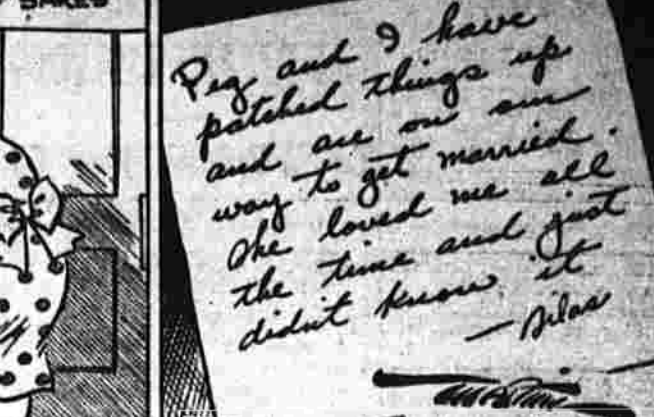 SAKES
Peg and I have
patched things up
and are on our
way to get married.
She loved me all
the time and just
didn't know it
— Silas